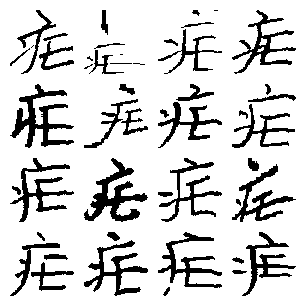 疟疟疟疟
疟疟疟疟
疟疟疟疟
疟疟疟疟